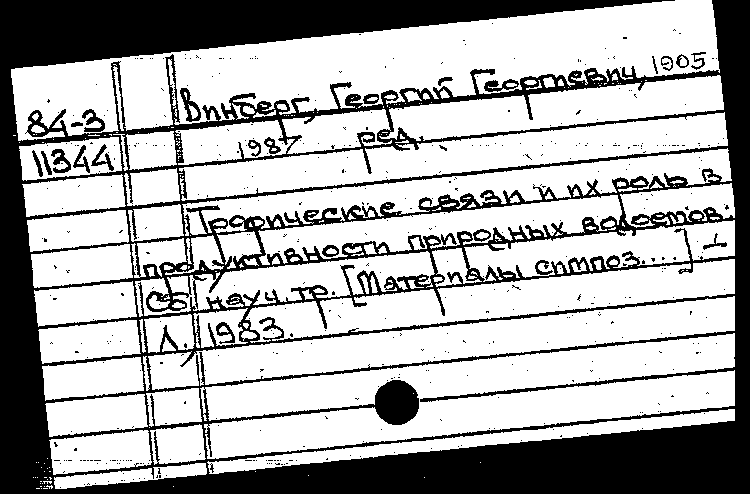 84-3
11344
Винберг, Георгий Георгиевич, 1905
1987 ред.
Трофические связи и их роль в
продуктивности природных водоемов:
Сб. науч. тр. [Материалы симпоз....]. –
Л., 1983.